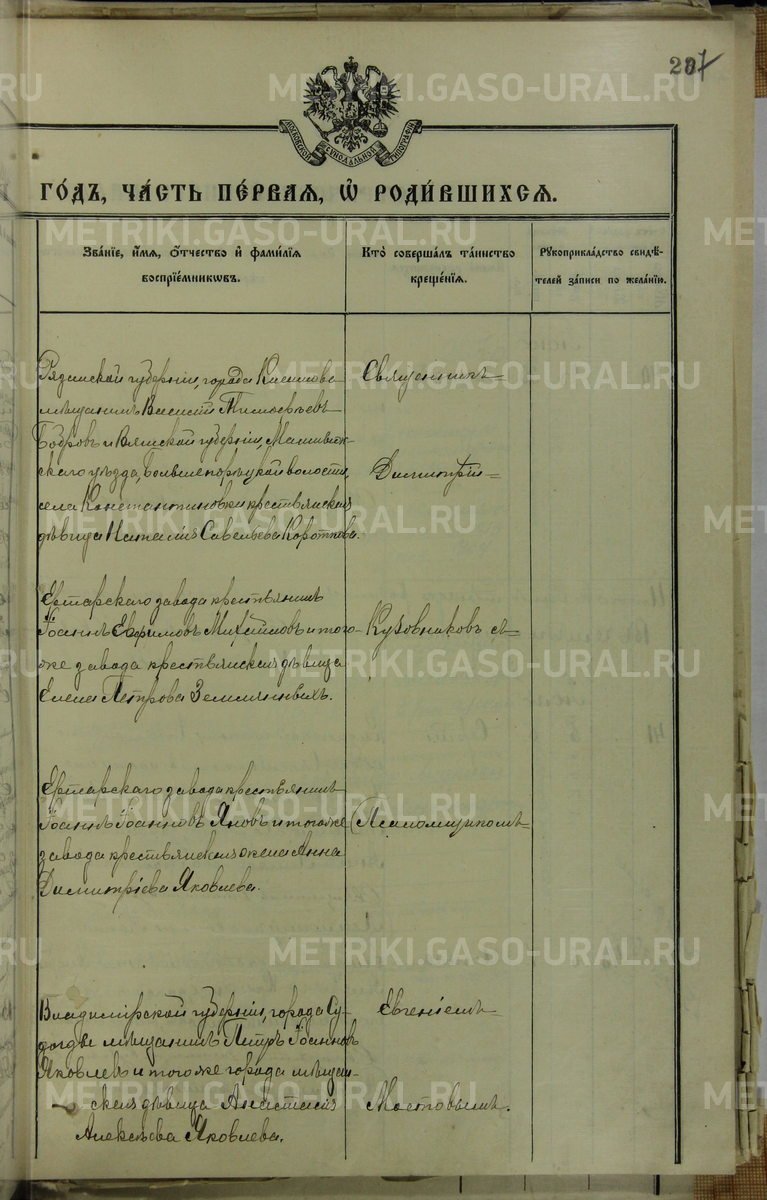 207
МОСКОВСКОЙ СѴНОДАЛЬНОЙ ТИПОГРАФІИ
ГО́ДЪ, ЧА́СТЬ ПЕ́РВАѦ, Ѡ҆ РОДИ́ВШИХСѦ.
Зва́нїе, и҆́мѧ, ѻ҆́тчество и҆ фами́лїѧ воспрїе́мникѡвъ.
Кто̀ соверша́лъ та́инство креще́нїѧ.
Рꙋкоприкла́дство свидѣ́телей за́писи по жела́нїю.
Рязанской губерніи, города Касимова
мѣщанинъ Василій Тимоѳеевъ
Бобровъ и Вятской губерніи,
скаго уѣзда, Большепорѣцкой волости,
села Константиновки крестьянская
дѣвица Наталія Савельева Короткова.
Священникъ
Димитрій
Ертарскаго завода крестьянинъ
Іоаннъ Евфимовъ Михайловъ и того-
же завода крестьянская дѣвица
Елена Петрова Земляныхъ.
Кузовниковъ съ
Ертарскаго завода крестьянинъ
Іоаннъ Іоанновъ Яковъ и тогоже
завода крестьянская жена Анна
Димитріева Яковлева.
Псаломщикомъ
Владимірской губерніи, города Су-
догды мѣщанинъ Петръ Іоанновъ
Яковлевъ и тогоже города мѣщан-
ская дѣвица Анастасія
Алексѣева Яковлева.
Евгеніемъ
Мостовымъ.
METRIKI.GASO-URAL.RU